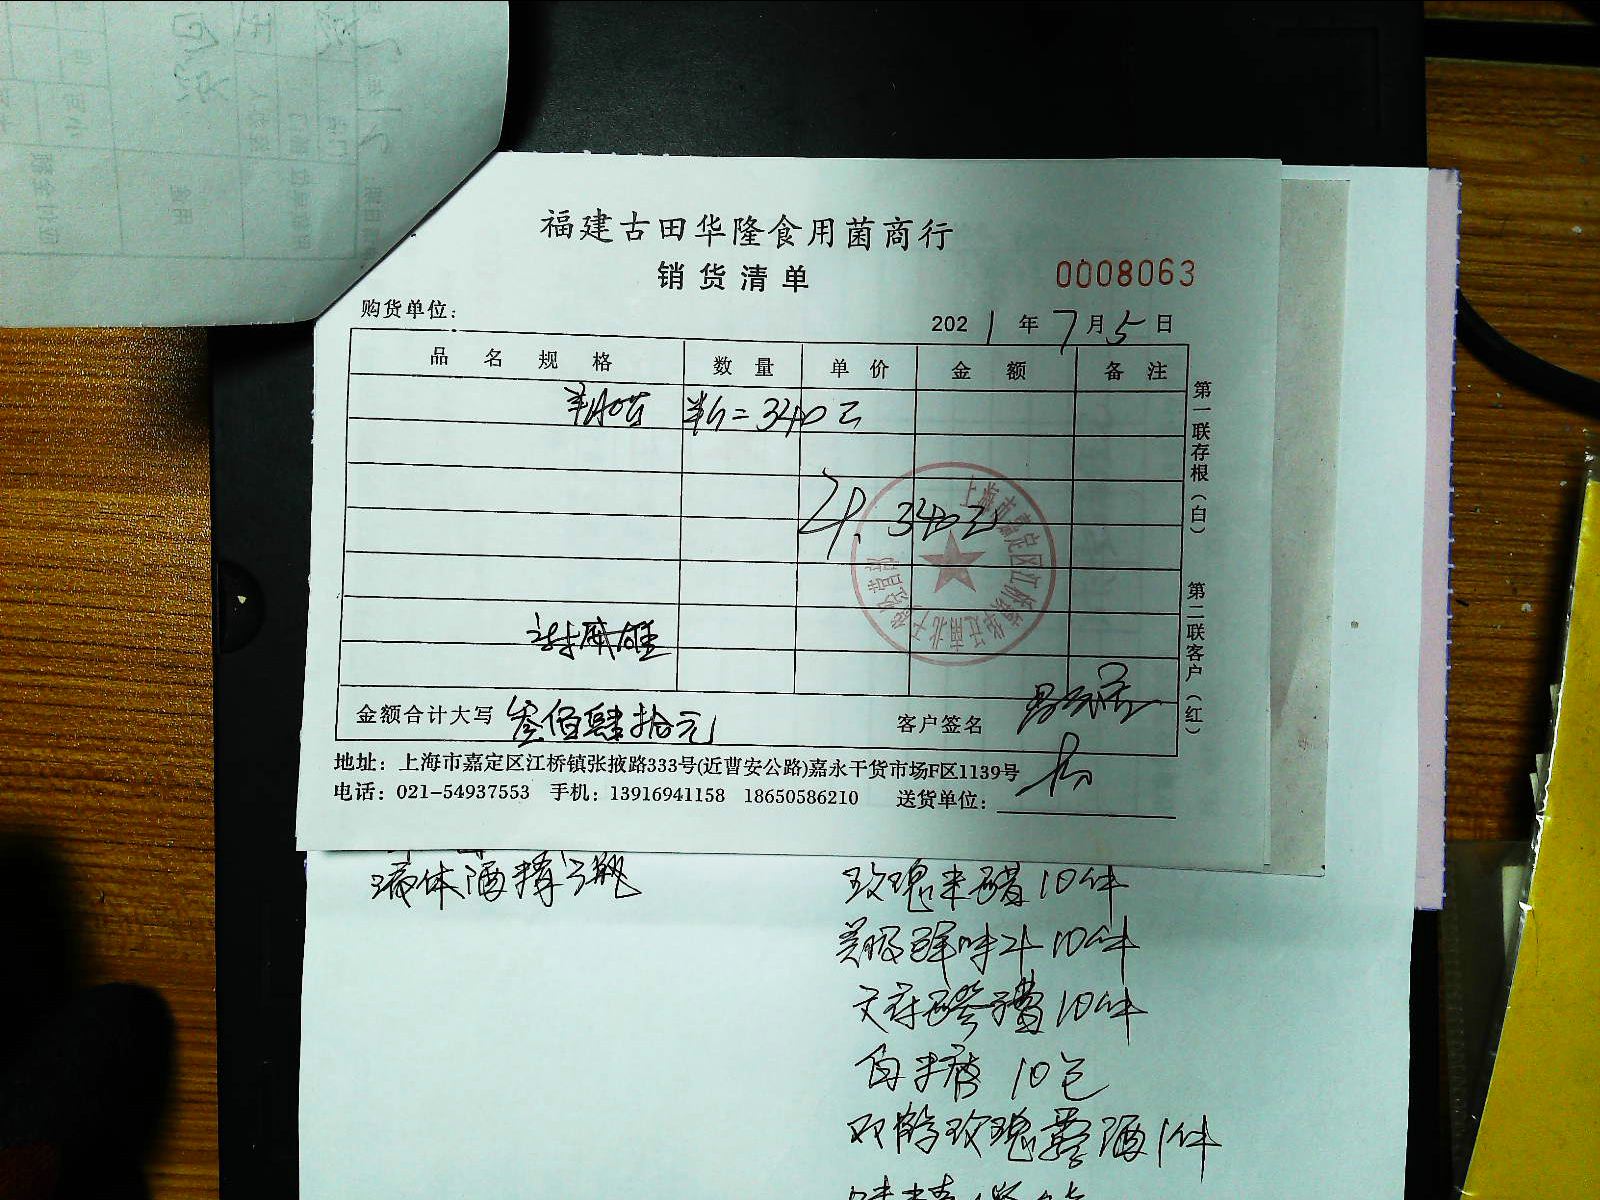 福建古田华隆食用菌商行
销货清单
0008063
购货单位：
2021年7月5日
品名规格 数量 单价 金额 备注
羊肚菌 半斤=340元
计. 340元
金额合计大写 叁佰肆拾元 客户签名
地址：上海市嘉定区江桥镇张掖路333号(近曹安公路)嘉永干货市场F区1139号
电话：021-54937553 手机：13916941158 18650586210 送货单位：
第一联存根（白） 第二联客户（红）
液体酒精 瓶
玫瑰米醋10件
美极鲜味汁10件
10件
白米醋 10包
双鹤玫瑰露酒1件